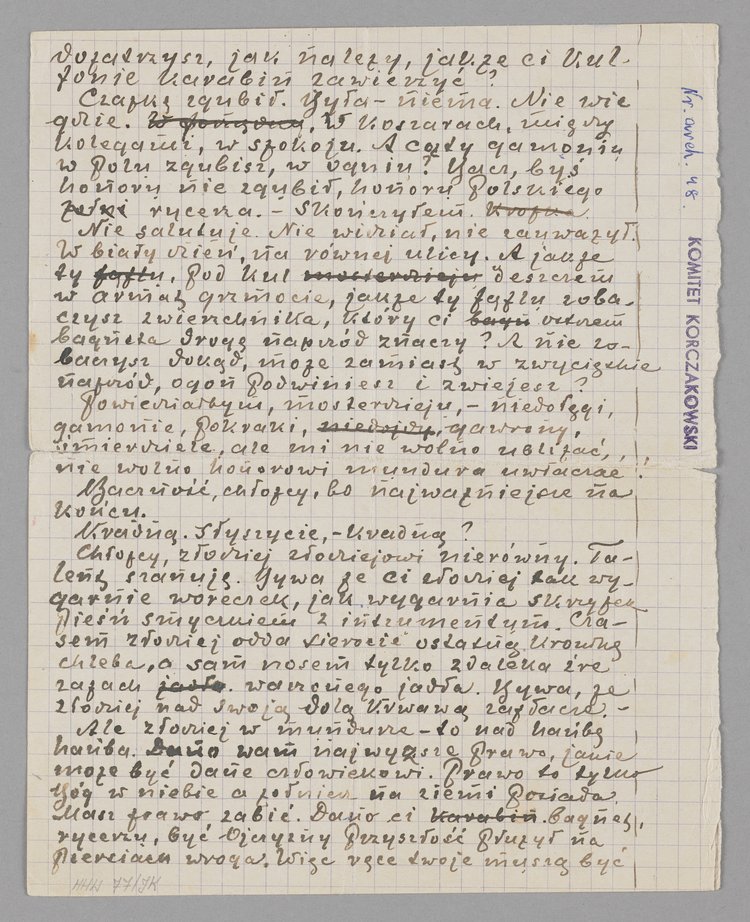 dopatrzysz, jak należy, jakże ci kul-
fonie karabin zawierzyć?
Czapkę zgubił. Była - niema. Nie wie
gdzie. W koszarach, między
kolegami, w spokoju. A cóżty gamoniu
w polu zgubisz, w ogniu? Bacz, byś
honoru nie zgubił, honoru Polskiego
rycerza. - Skończyłem. Kropka
Nie salutuje. Nie widział, nie zauważył.
W biały dzień, na równej ulicy. A jakże
ty fąflu, pod kul mosterdzieju deszczem
w armat grzmocie, jakże ty fąflu zoba-
czysz zwierzchnika, który ci bagn ostrzem
bagneta drogę naprzód znaczy? A nie zo-
baczysz dokąd, może zamiast w zwycięzkie
naprzód, ogon podwiniesz i zwiejesz?
Powiedziałbym, mosterdzieju, - niedołęgi,
gamonie, pokraki, niedojdy, gawrony,
śmierdziele, ale mi nie wolno ubliżać,
nie wolno honorowi mundura uwłaczać!
Baczność, chłopcy, bo najważniejsze na
końcu.
Kradną. Słyszycie, - kradną?
Chłopcy, złodziej złodziejowi nierówny. Ta-
lent szanuję. Bywa że ci złodziej tak wy-
garnie woreczek, jak wygarnia skrzypek
pieśń smyczkiem z instrumentu. Cza-
sem złodziej odda sierocie ostatnią kromkę
chleba, a sam nosem tylko zdaleka żre
zapach jadła. warzonego jadła. Bywa, że
złodziej nad swoją dolą krwawą zapłacze. -
Ale złodziej w mundurze - to nad hańbę
hańba. Dano wam najwyższe prawo, jakie
może być dane człowiekowi. Prawo to tylko
Bóg w niebie a żołnierz na ziemi posiada.
Masz prawo zabić. Dano ci karabin. bagnet,
rycerzu, byś Ojczyzny Przyszłość płużył na
piersiach wroga. Więc ręce twoje muszą być
Nr. arch. 48.
KOMITET KORCZAKOWSKI